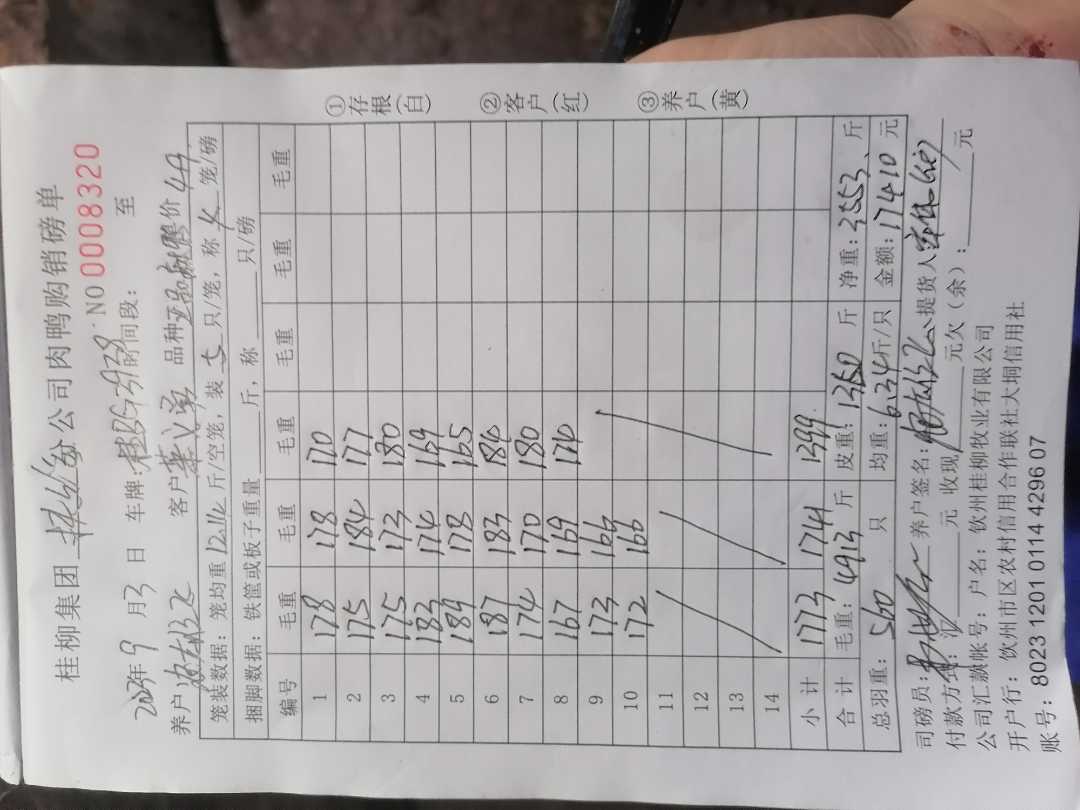 桂柳集团 分公司肉鸭购销磅单
NO 0008320
2023年9月3日 车牌: 时间段: 至
养户 客户 品种 价 4.9
笼装数据: 笼均重 12.14 斤/空笼, 装 只/笼, 称 4 笼/磅
捆脚数据: 铁筐或板子重量 斤, 称 只/磅
编号 毛重 毛重 毛重 毛重 毛重 毛重
1 178 178 170
2 175 184 177
3 175 173 180
4 183 174 169
5 189 178 165
6 187 183 184
7 174 170 180
8 167 169 174
9 173 166
10 172 166
11
12
13
14
小计 1773 1741 1399
合计 毛重: 4913 斤 皮重: 1360 斤 净重: 3553 斤
总羽重: 560 只 均重: 6.34 斤/只 金额: 17410 元
司磅员: 养户签名: 提货人
付款方式: 元 收现 元欠(余): 元
公司汇款帐号: 户名: 钦州桂柳牧业有限公司
开户行: 钦州市区农村信用合作联社大垌信用社
账号: 8023 1201 0114 4296 07
①存根(白) ②客户(红) ③养户(黄)